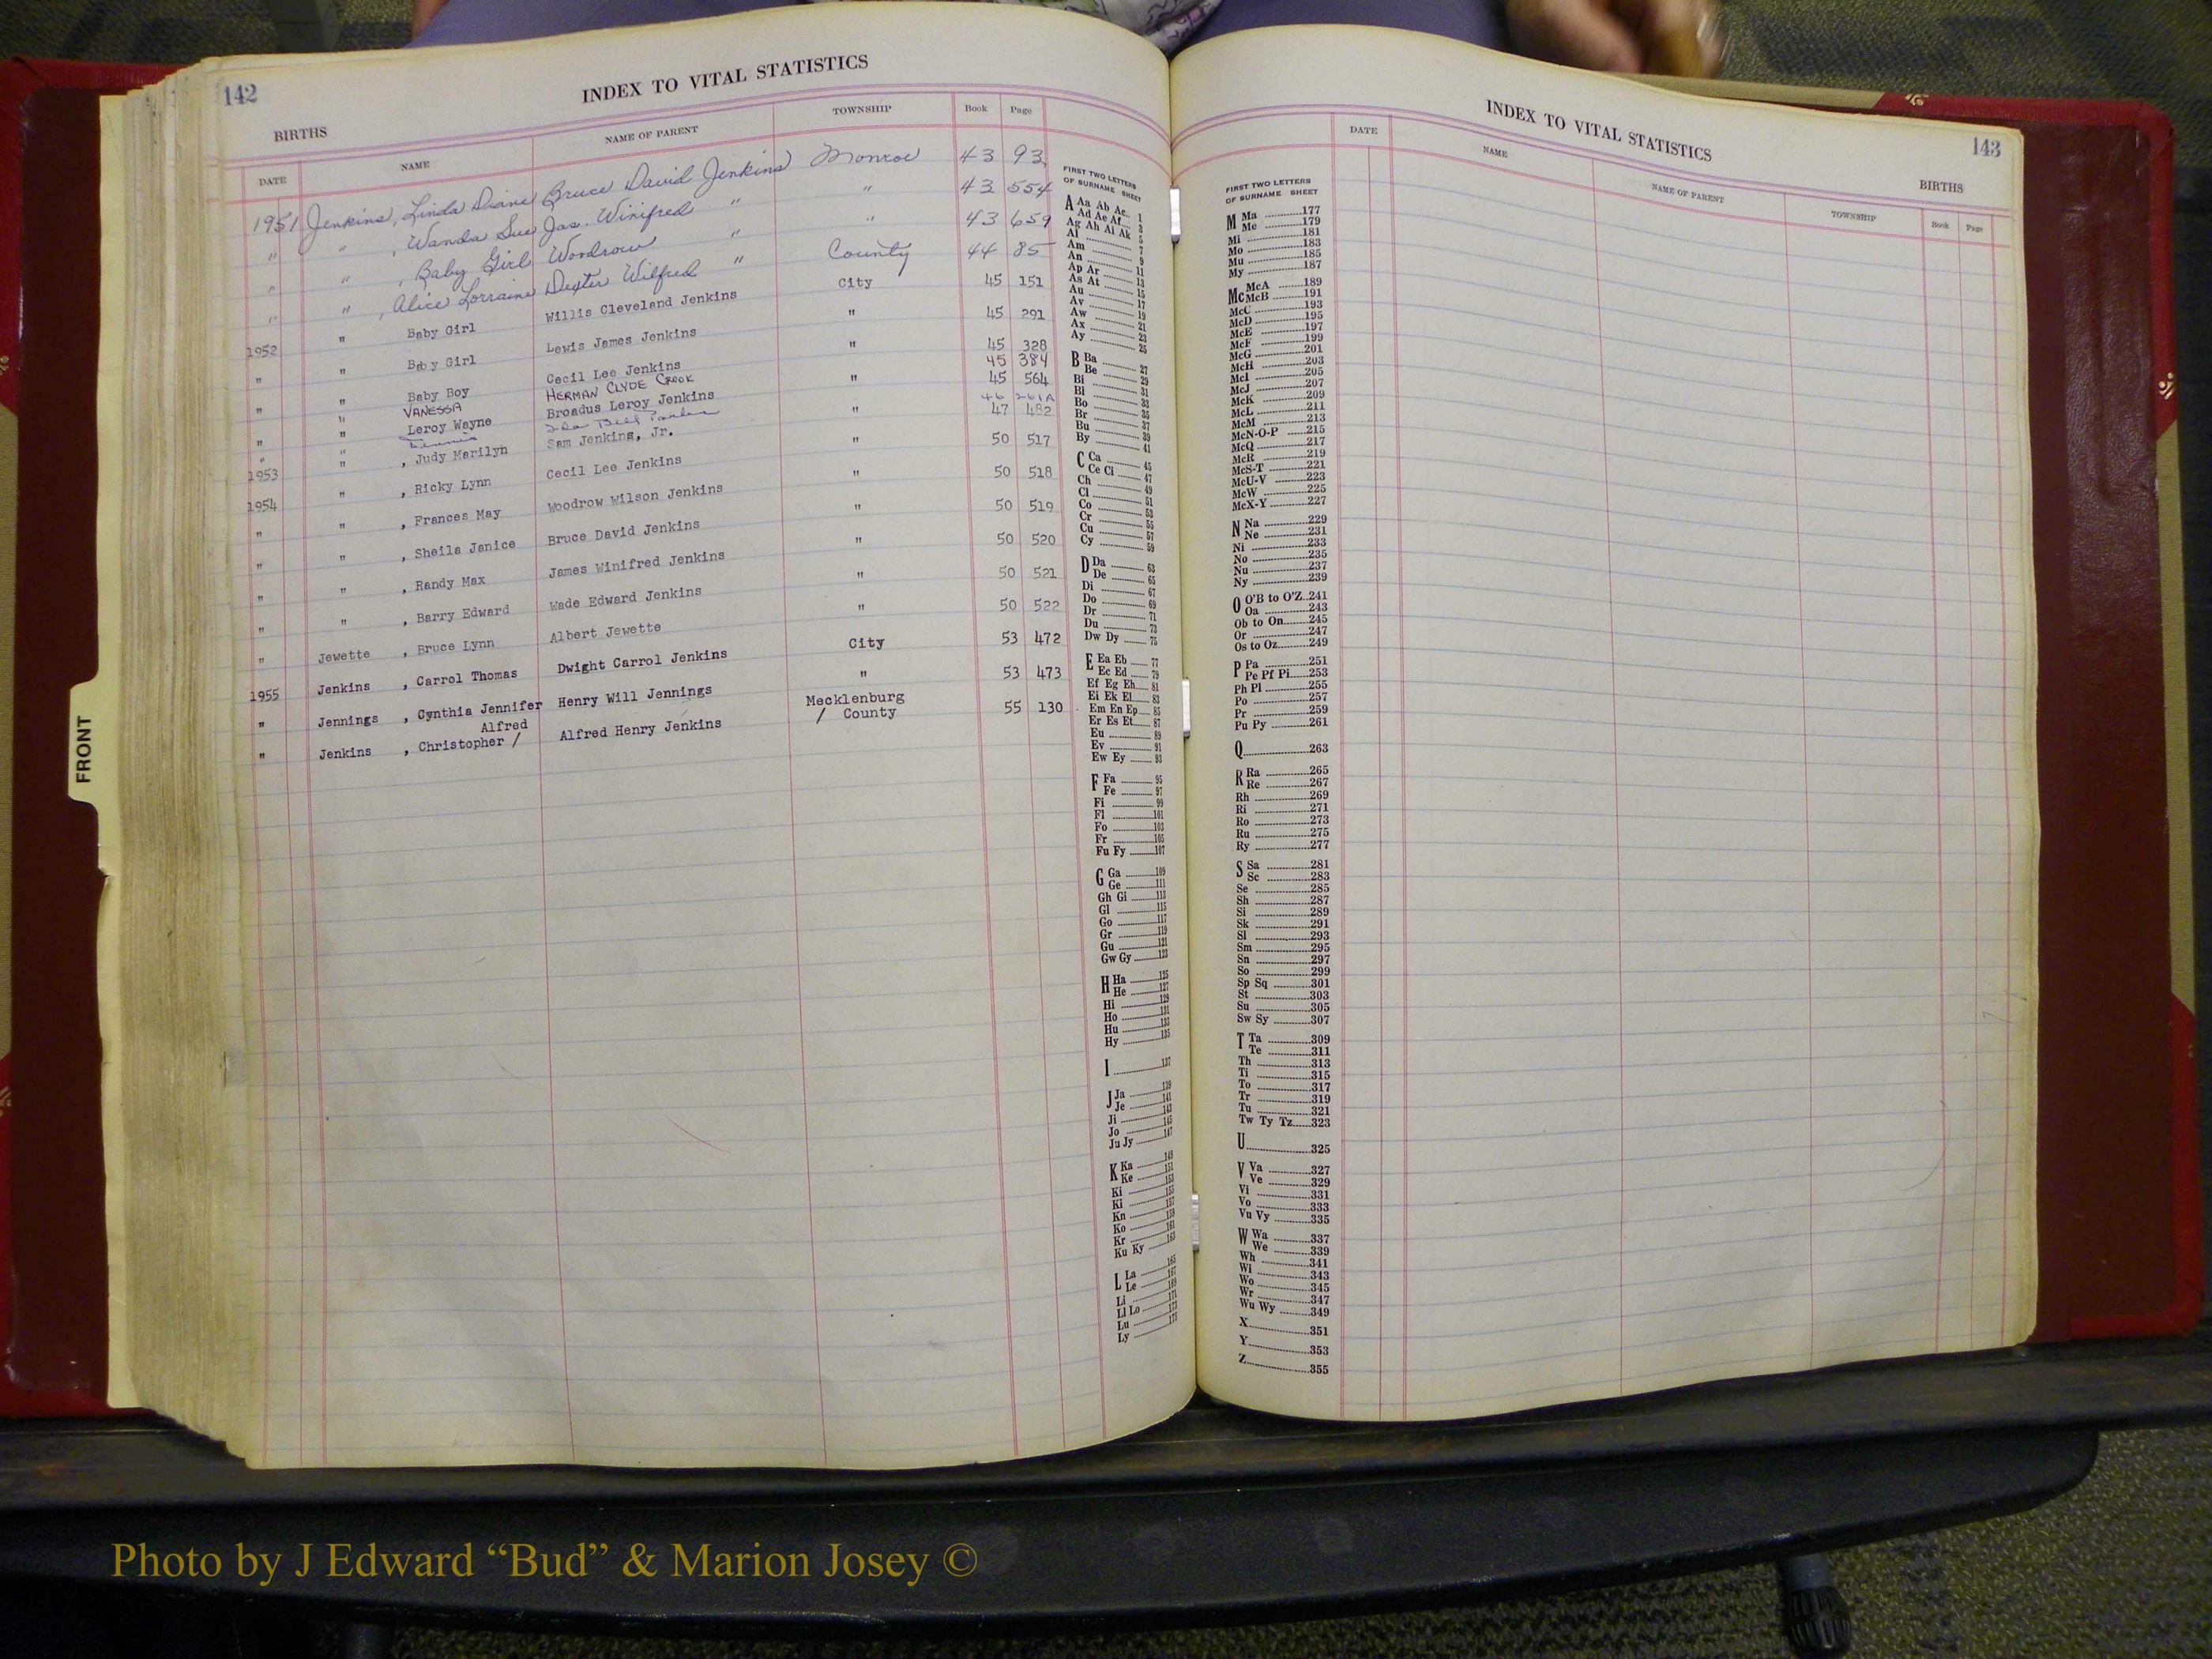 142
INDEX TO VITAL STATISTICS
BIRTHS
DATE NAME NAME OF PARENT TOWNSHIP Book Page
1951 Jenkins, Linda Diane Bruce David Jenkins Monroe 43 93
" " , Wanda Sue Jas. Winifred " " 43 554
" " , Baby Girl Woodrow " " 43 659
" " , Alice Lorraine Dexter Wilfred " County 44 85
1952 " Baby Girl Willis Cleveland Jenkins City 45 151
" " Baby Girl Lewis James Jenkins " 45 291
" " Baby Boy Cecil Lee Jenkins " 45 328
" VANESSA HERMAN CLYDE CROOK 45 384
" " Leroy Wayne Broadus Leroy Jenkins " 45 564
" " 46 261A
1953 " , Judy Marilyn Sam Jenking, Jr. " 47 482
1954 " , Ricky Lynn Cecil Lee Jenkins " 50 517
" " , Frances May Woodrow Wilson Jenkins " 50 518
" " , Sheila Janice Bruce David Jenkins " 50 519
" " , Randy Max James Winifred Jenkins " 50 520
" " , Barry Edward Wade Edward Jenkins " 50 521
" Jewette , Bruce Lynn Albert Jewette " 50 522
1955 Jenkins , Carrol Thomas Dwight Carrol Jenkins City 53 472
" Jennings , Cynthia Jennifer Henry Will Jennings " 53 473
" Jenkins , Christopher / Alfred Alfred Henry Jenkins Mecklenburg / County 55 130
FRONT
FIRST TWO LETTERS
OF SURNAME SHEET
A Aa Ab Ac 1
Ad Ae Af 3
Ag Ah Ai Ak 5
Al 7
Am 9
An 11
Ap Ar 13
As At 15
Au 17
Av 19
Aw 21
Ax 23
Ay 25
B Ba 27
Be 29
Bi 31
Bl 33
Bo 35
Br 37
Bu 39
By 41
C Ca 45
Ce Ci 47
Ch 49
Cl 51
Co 53
Cr 55
Cu 57
Cy 59
D Da 63
De 65
Di 67
Do 69
Dr 71
Du 73
Dw Dy 75
E Ea Eb 77
Ec Ed 79
Ef Eg Eh 81
Ei Ek El 83
Em En Ep 85
Er Es Et 87
Eu 89
Ev 91
Ew Ey 93
F Fa 95
Fe 97
Fi 99
Fl 101
Fo 103
Fr 105
Fu Fy 107
G Ga 109
Ge 111
Gh Gi 113
Gl 115
Go 117
Gr 119
Gu 121
Gw Gy 123
H Ha 125
He 127
Hi 129
Ho 131
Hu 133
Hy 135
I 137
J Ja 139
Je 141
Ji 143
Jo 145
Ju Jy 147
K Ka 149
Ke 151
Ki 153
Kl 155
Kn 157
Ko 159
Kr 161
Ku Ky 163
L La 165
Le 167
Li 169
Ll Lo 171
Lu 173
Ly 175
INDEX TO VITAL STATISTICS
143
BIRTHS
DATE NAME NAME OF PARENT TOWNSHIP Book Page
FIRST TWO LETTERS
OF SURNAME SHEET
M Ma 177
Me 179
Mi 181
Mo 183
Mu 185
My 187
Mc McA 189
McB 191
McC 193
McD 195
McE 197
McF 199
McG 201
McH 203
McI 205
McJ 207
McK 209
McL 211
McM 213
McN-O-P 215
McQ 217
McR 219
McS-T 221
McU-V 223
McW 225
McX-Y 227
N Na 229
Ne 231
Ni 233
No 235
Nu 237
Ny 239
O O'B to O'Z 241
Oa 243
Ob to On 245
Or 247
Os to Oz 249
P Pa 251
Pe Pf Pi 253
Ph Pl 255
Po 257
Pr 259
Pu Py 261
Q 263
R Ra 265
Re 267
Rh 269
Ri 271
Ro 273
Ru 275
Ry 277
S Sa 281
Sc 283
Se 285
Sh 287
Si 289
Sk 291
Sl 293
Sm 295
Sn 297
So 299
Sp Sq 301
St 303
Su 305
Sw Sy 307
T Ta 309
Te 311
Th 313
Ti 315
To 317
Tr 319
Tu 321
Tw Ty Tz 323
U 325
V Va 327
Ve 329
Vi 331
Vo 333
Vu Vy 335
W Wa 337
We 339
Wh 341
Wi 343
Wo 345
Wr 347
Wu Wy 349
X 351
Y 353
Z 355
Photo by J Edward “Bud” & Marion Josey ©